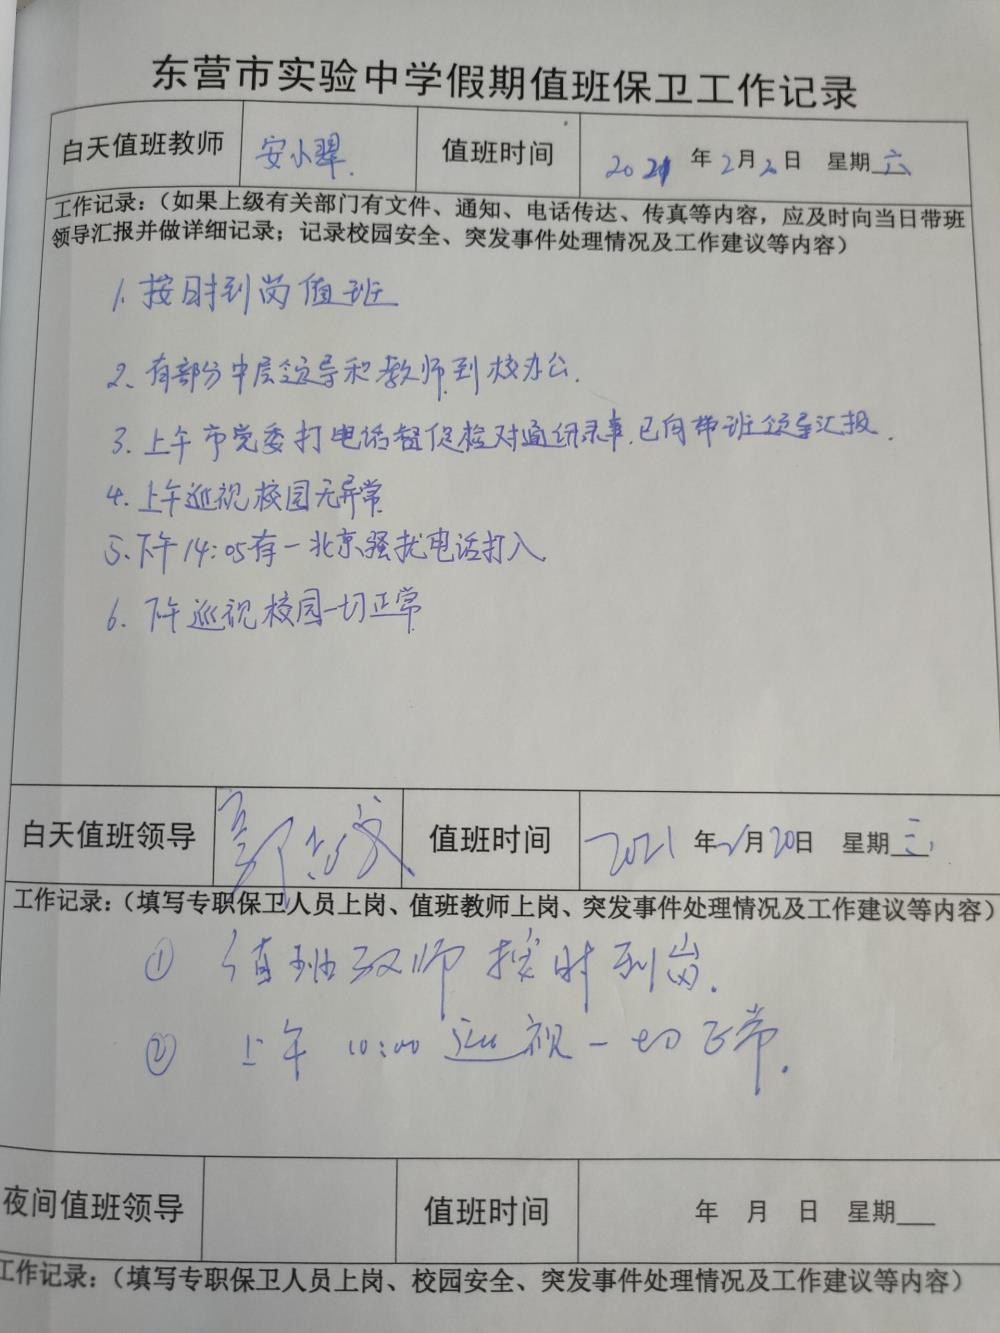 东营市实验中学假期值班保卫工作记录
白天值班教师 安小翠. 值班时间 2021 年 2 月 20 日 星期六
工作记录：（如果上级有关部门有文件、通知、电话传达、传真等内容，应及时向当日带班
领导汇报并做详细记录；记录校园安全、突发事件处理情况及工作建议等内容）
1. 按时到岗值班
2、有部分中层领导和教师到校办公.
3. 上午市党委打电话督促核对通讯录事,已向带班领导汇报.
4. 上午巡视校园无异常
5、下午14:05有一北京骚扰电话打入.
6. 下午巡视校园一切正常
白天值班领导 值班时间 2021 年 2 月 20 日 星期
工作记录：（填写专职保卫人员上岗、值班教师上岗、突发事件处理情况及工作建议等内容）
① 值班教师按时到岗.
② 上午 10:00 巡视一切正常.
夜间值班领导 值班时间 年 月 日 星期
工作记录：（填写专职保卫人员上岗、校园安全、突发事件处理情况及工作建议等内容）